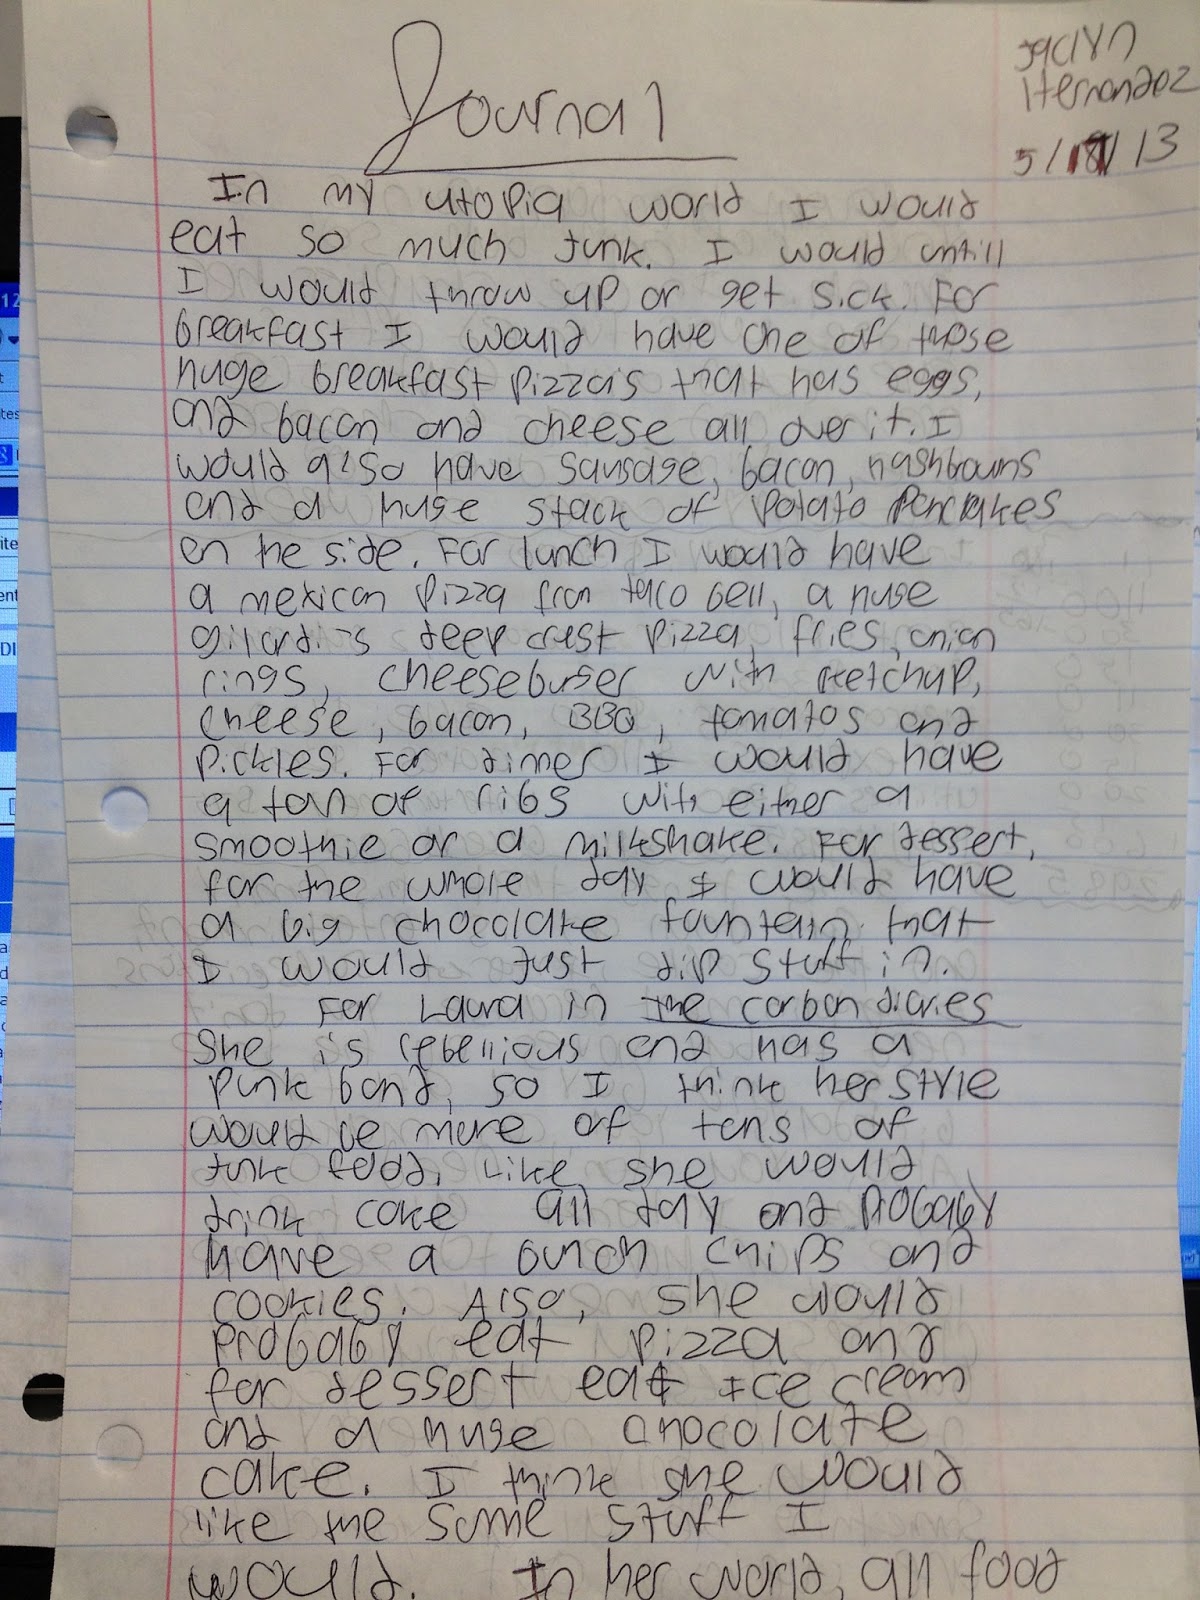 Journal
Jaclyn
Hernandez
5/ /13
In my utopia world I would
eat so much junk. I would untill
I would throw up or get sick. For
breakfast I would have one of those
huge breakfast pizza's that has eggs,
and bacon and cheese all over it. I
would also have sausage, bacon, hashbouns
and a huge stack of potato pancakes
on the side. For lunch I would have
a mexican pizza from taco bell, a huge
gilardi's deep crust pizza, fries, onion
rings, cheeseburger with ketchup,
cheese, bacon, BBQ, tomatos and
pickles. For dinner I would have
a ton of ribs with either a
smoothie or a milkshake. For dessert,
for the whole day I would have
a big chocolate fountain that
I would just dip stuff in.
For Laura in the carbon diaries
she is rebellious and has a
punk band, so I think her style
would be more of tons of
junk food, like she would
drink coke all day and probably
have a bunch chips and
cookies. Also, she would
probably eat pizza and
for dessert eat Ice cream
and a huge chocolate
cake. I think she would
like the same stuff I
would. In her world, all food